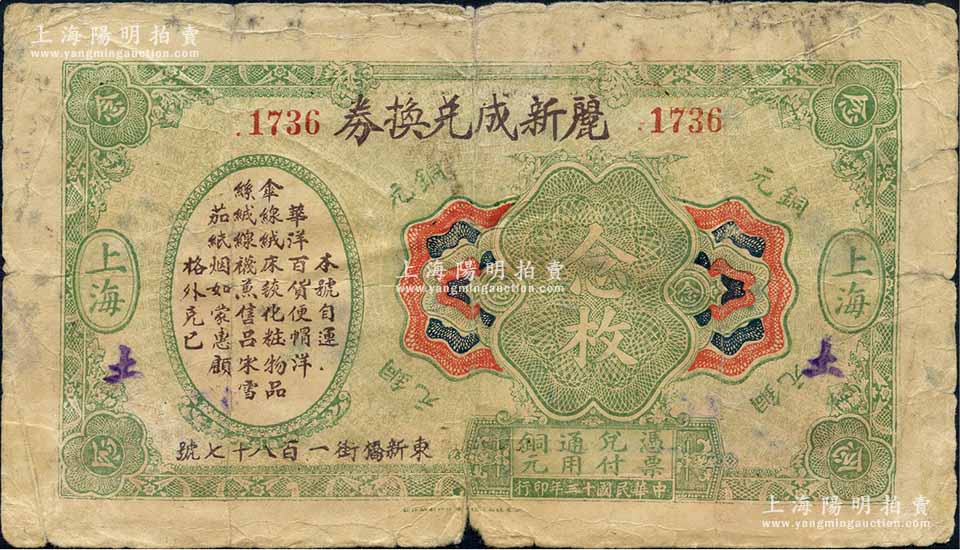 上海陽明拍賣
www.yangmingauction.com
麗新成兌換券
1736
1736
銅元
銅元
銅元
銅元
上海
上海
念枚
上海陽明拍賣
www.yangmingauction.com
本號自運
華洋百貨便帽洋
傘線絨床毯化粧物品
絲絨線襪蒸售呂宋雪
茄紙烟如蒙惠顧
格外克已
土
土
東新橋街一百八十七號
憑票兌付通用銅元
中華民國十三年印行
上海陽明拍賣
www.yangmingauction.com